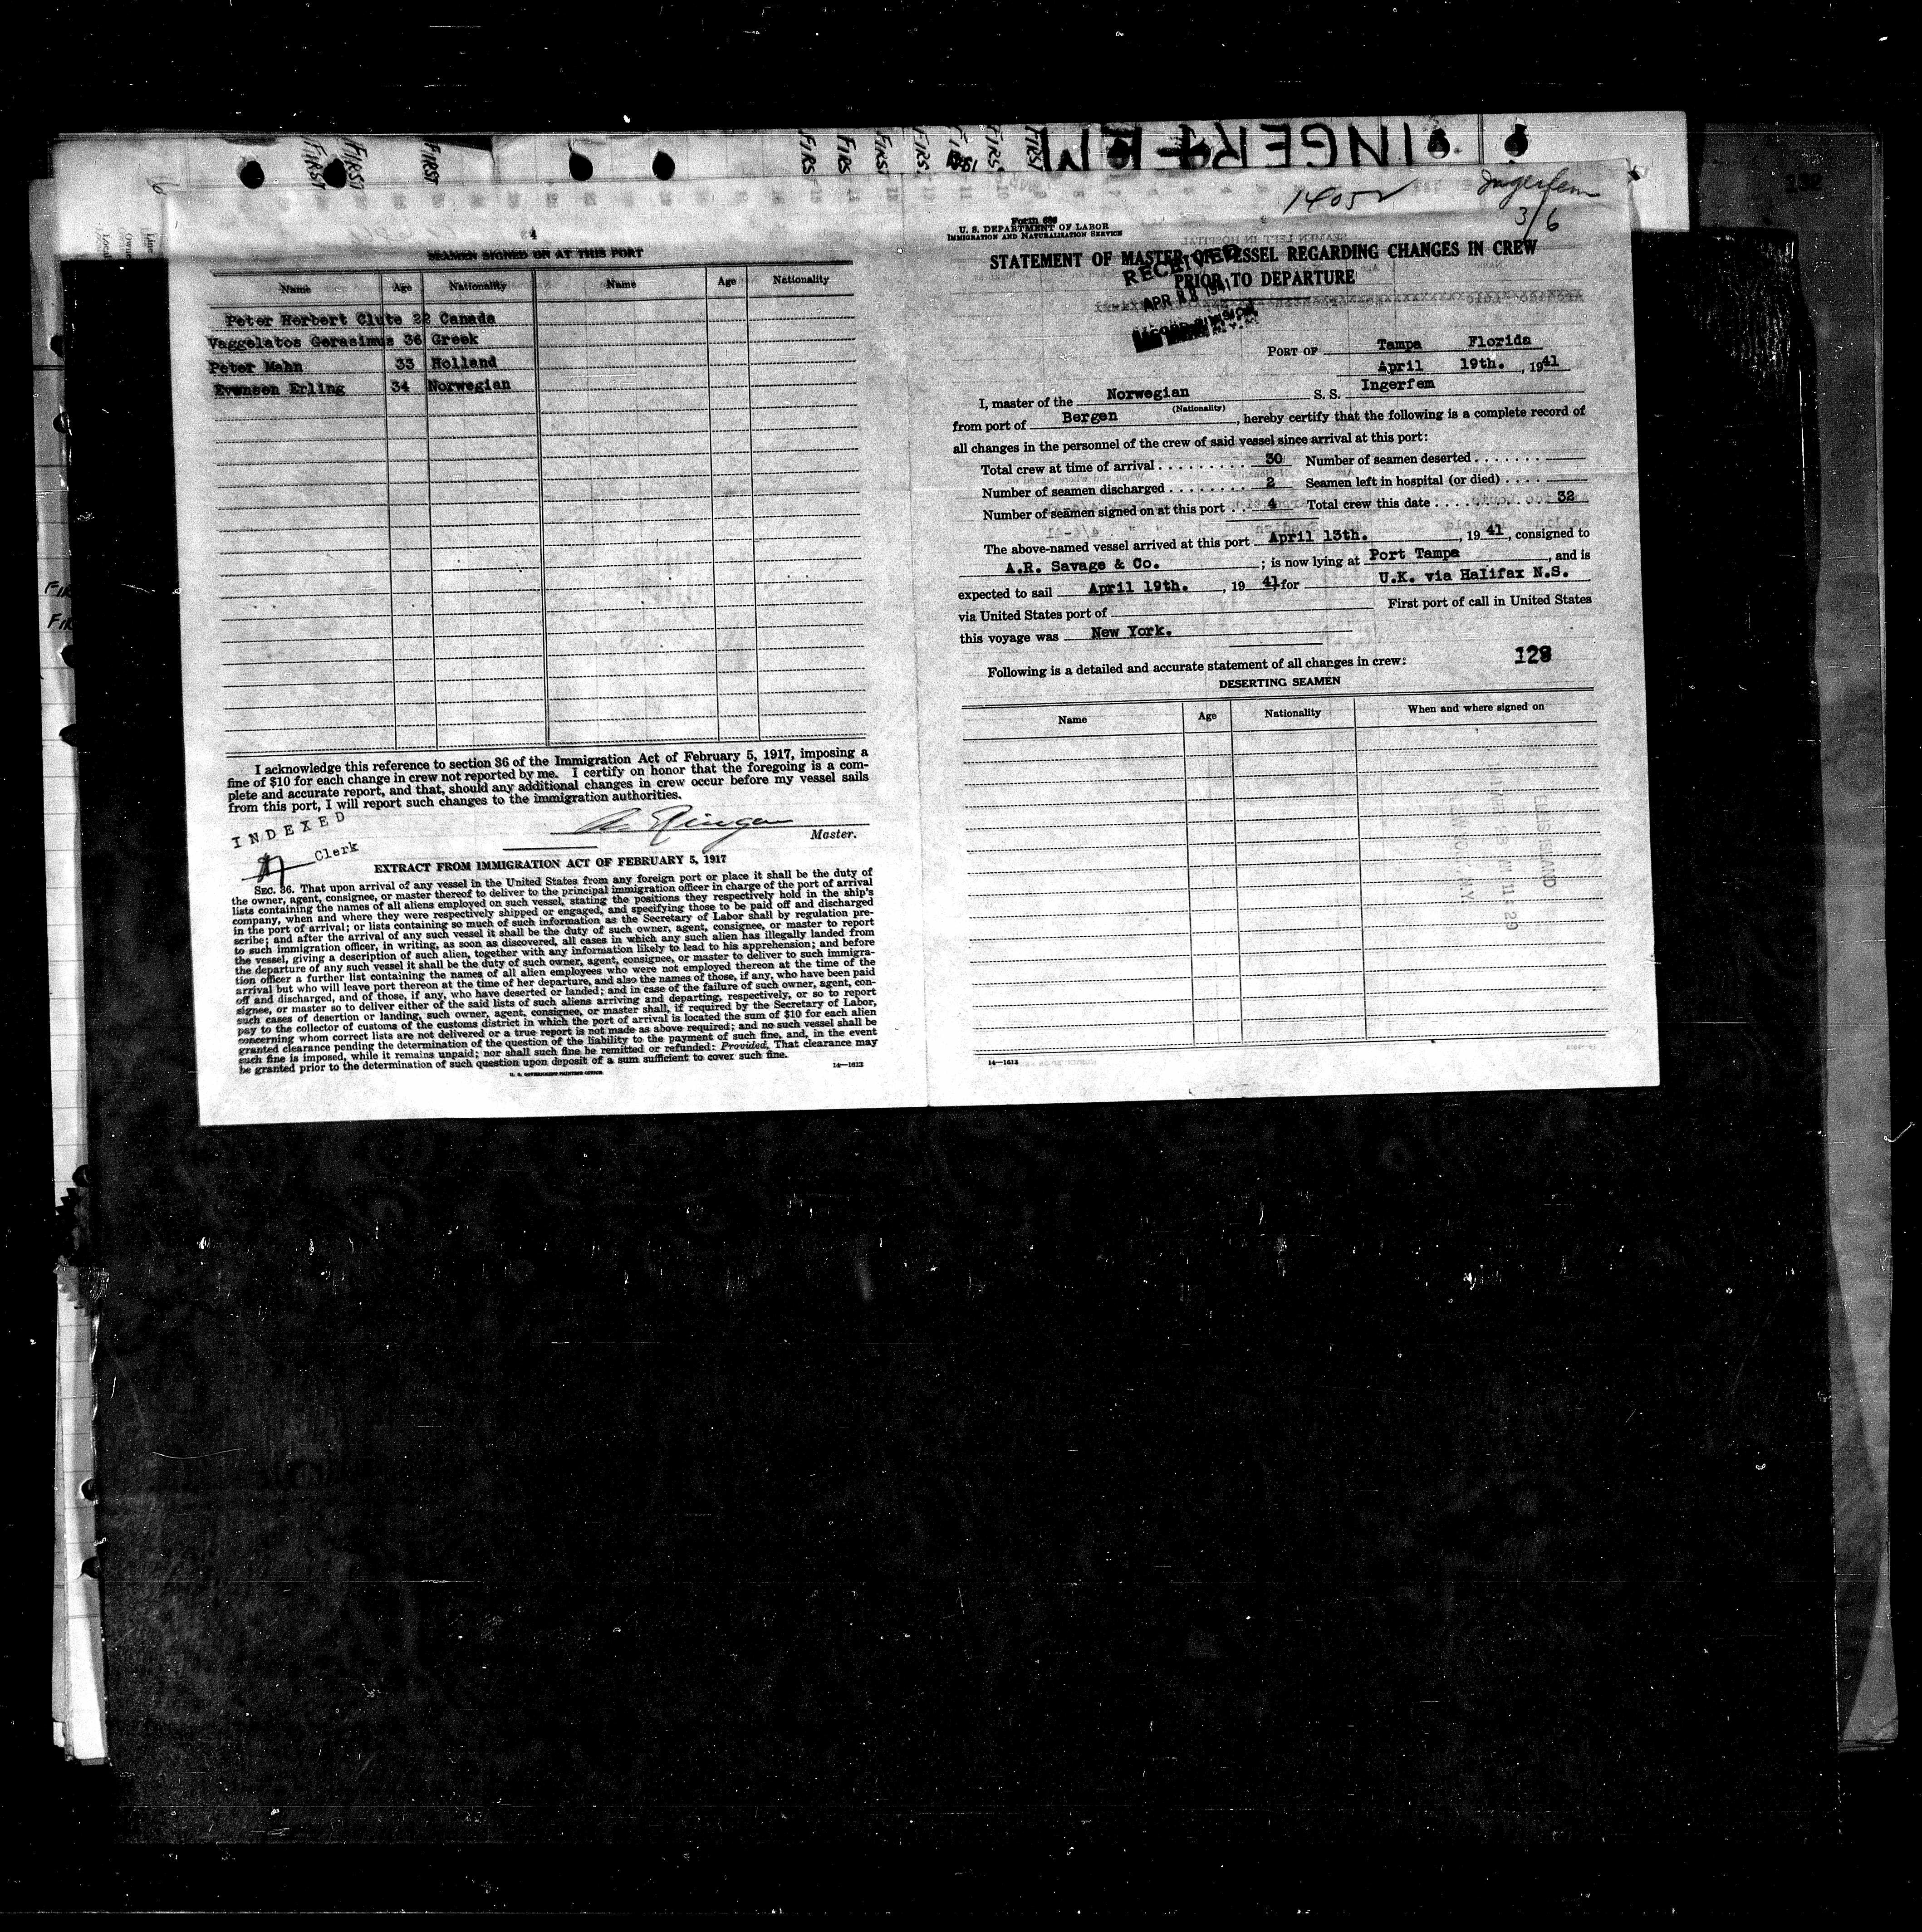 FIRST
FIRST
FIRST
FIRS
FIRS
FIRST
FIRS
FIRS
FIRST
INGERFEM
132
4
SEAMEN SIGNED ON AT THIS PORT
Name Age Nationality Name Age Nationality
Peter Herbert Clute 22 Canada
Vaggelatos Gerasimus 36 Greek
Peter Mahn 33 Holland
Evensen Erling 34 Norwegian
I acknowledge this reference to section 36 of the Immigration Act of February 5, 1917, imposing a
fine of $10 for each change in crew not reported by me. I certify on honor that the foregoing is a com-
plete and accurate report, and that, should any additional changes in crew occur before my vessel sails
from this port, I will report such changes to the immigration authorities.
Master.
INDEXED
Clerk
EXTRACT FROM IMMIGRATION ACT OF FEBRUARY 5, 1917
SEC. 36. That upon arrival of any vessel in the United States from any foreign port or place it shall be the duty of
the owner, agent, consignee, or master thereof to deliver to the principal immigration officer in charge of the port of arrival
lists containing the names of all aliens employed on such vessel, stating the positions they respectively hold in the ship's
company, when and where they were respectively shipped or engaged, and specifying those to be paid off and discharged
in the port of arrival; or lists containing so much of such information as the Secretary of Labor shall by regulation pre-
scribe; and after the arrival of any such vessel it shall be the duty of such owner, agent, consignee, or master to report
to such immigration officer, in writing, as soon as discovered, all cases in which any such alien has illegally landed from
the vessel, giving a description of such alien, together with any information likely to lead to his apprehension; and before
the departure of any such vessel it shall be the duty of such owner, agent, consignee, or master to deliver to such immigra-
tion officer a further list containing the names of all alien employees who were not employed thereon at the time of the
arrival but who will leave port thereon at the time of her departure, and also the names of those, if any, who have been paid
off and discharged, and of those, if any, who have deserted or landed; and in case of the failure of such owner, agent, con-
signee, or master so to deliver either of the said lists of such aliens arriving and departing, respectively, or so to report
such cases of desertion or landing, such owner, agent, consignee, or master shall, if required by the Secretary of Labor,
pay to the collector of customs of the customs district in which the port of arrival is located the sum of $10 for each alien
concerning whom correct lists are not delivered or a true report is not made as above required; and no such vessel shall be
granted clearance pending the determination of the question of the liability to the payment of such fine, and, in the event
such fine is imposed, while it remains unpaid; nor shall such fine be remitted or refunded: Provided, That clearance may
be granted prior to the determination of such question upon deposit of a sum sufficient to cover such fine.
U. S. GOVERNMENT PRINTING OFFICE
14—1613
1405
Ingerfem
3/6
Form 686
U. S. DEPARTMENT OF LABOR
IMMIGRATION AND NATURALIZATION SERVICE
STATEMENT OF MASTER OF VESSEL REGARDING CHANGES IN CREW
PRIOR TO DEPARTURE
RECEIVED
APR 1941
PORT OF Tampa Florida
April 19th. , 1941
I, master of the Norwegian S. S. Ingerfem
(Nationality)
from port of Bergen , hereby certify that the following is a complete record of
all changes in the personnel of the crew of said vessel since arrival at this port:
Total crew at time of arrival 30 Number of seamen deserted
Number of seamen discharged 2 Seamen left in hospital (or died)
Number of seamen signed on at this port 4 Total crew this date 32
The above-named vessel arrived at this port April 13th. , 19 41, consigned to
A.R. Savage & Co. ; is now lying at Port Tampa , and is
expected to sail April 19th. , 19 41 for U.K. via Halifax N.S.
via United States port of First port of call in United States
this voyage was New York.
Following is a detailed and accurate statement of all changes in crew:
128
DESERTING SEAMEN
Name Age Nationality When and where signed on
ELLIS ISLAND
14—1613